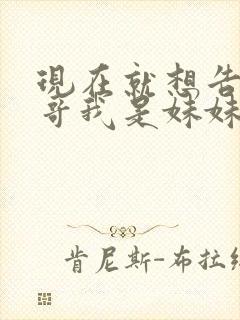 現在就想告
哥我是妹妹
肯尼斯-布拉